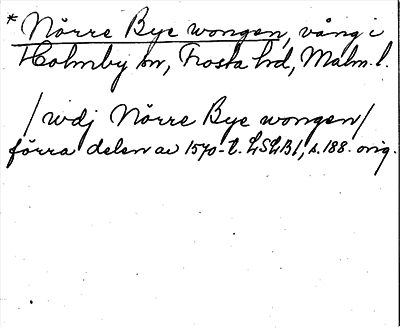 * Nörre Bye wongen, vång i
Holmby sn, Frosta hd, Malm. l.
/ wdj Nörre Bye wongen /
förra delen av 1570-t. LSLB1, s. 188. orig.